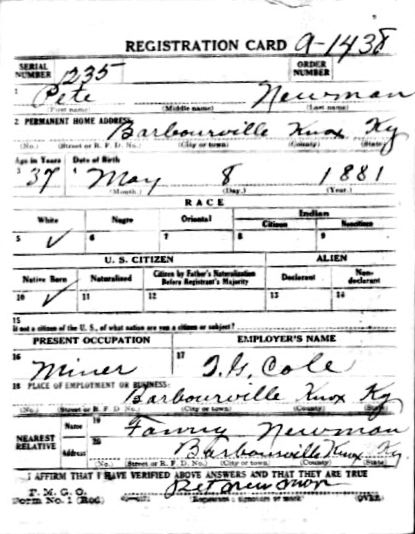 REGISTRATION CARD 9-1438
SERIAL NUMBER 1235 ORDER NUMBER
1 Pete Newman
(First name) (Middle name) (Last name)
2 PERMANENT HOME ADDRESS:
Barbourville Knox Ky
(No.) (Street or R. F. D. No.) (City or town) (County) (State)
Age in Years Date of Birth
3 37 4 May 8 1881
(Month.) (Day.) (Year.)
RACE
White Negro Oriental Indian
Citizen Noncitizen
5 ✓ 6 7 8 9
U. S. CITIZEN ALIEN
Native Born Naturalized Citizen by Father's Naturalization Before Registrant's Majority Declarant Non-declarant
10 ✓ 11 12 13 14
15
If not a citizen of the U. S., of what nation are you a citizen or subject?
PRESENT OCCUPATION EMPLOYER'S NAME
16 Miner 17 T. G. Cole
18 PLACE OF EMPLOYMENT OR BUSINESS:
Barbourville Knox Ky
(No.) (Street or R. F. D. No.) (City or town) (County) (State)
NEAREST RELATIVE Name 19 Fanny Newman
Address 20 Barbourville Knox Ky
(No.) (Street or R. F. D. No.) (City or town) (County) (State)
I AFFIRM THAT I HAVE VERIFIED ABOVE ANSWERS AND THAT THEY ARE TRUE
P. M. G. O.
Form No. 1 (Red) Pet Newmon
(Registrant's signature or mark) (OVER)